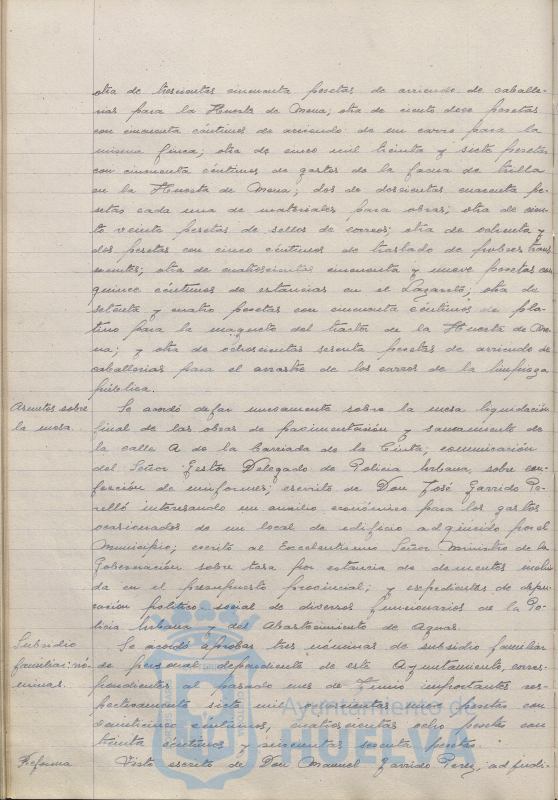 otra de trescientas cincuenta pesetas de arriendo de caballe-
rias para la Huerta de Mena; otra de ciento doce pesetas
con cincuenta céntimos de arriendo de un carro para la
misma finca; otra de cinco mil treinta y siete pesetas
con cincuenta céntimos de gastos de la faena de trilla
en la Huerta de Mena; dos de doscientas cincuenta pe-
setas cada una de materiales para obras; otra de cien-
to veinte pesetas de sellos de correos; otra de ochenta y
dos pesetas con cinco céntimos de traslado de pobres tran-
seuntes; otra de cuatrocientas cincuenta y nueve pesetas con
quince céntimos de estancias en el Lazareto; otra de
setenta y cuatro pesetas con cincuenta céntimos de pla-
tino para la magneto del tractor de la Huerta de Me-
na; y otra de ochocientas sesenta pesetas de arriendo de
caballerias para el arrastre de los carros de la limpieza
pública.
Asuntos sobre
la mesa.
Se acordó dejar nuevamente sobre la mesa liquidación
final de las obras de pavimentación y saneamiento de
la calle A de la Barriada de la Cinta; comunicación
del Señor Gestor Delegado de Policia Urbana, sobre con-
fección de uniformes; escrito de Don José Garrido Pe-
relló interesando un auxilio económico para los gastos
ocasionados de un local de edificio adquirido por el
Municipio; escrito al Excelentisimo Señor Ministro de la
Gobernación sobre tasa por estancia de dementes inclui-
da en el presupuesto provincial; y expedientes de depu-
ración politico social de diversos funcionarios de la Po-
licia Urbana y del Abastecimiento de Aguas.
Subsidio
familiar: nó-
minas.
Se acordó aprobar tres nóminas de subsidio familiar
de personal dependiente de este Ayuntamiento, corres-
pondientes al pasado mes de Junio importantes res-
pectivamente siete mil ochocientas una pesetas con
veinticinco céntimos, cuatrocientas ocho pesetas con
treinta céntimos y seiscientas sesenta pesetas.
Reforma
Visto escrito de Don Manuel Garrido Perez, adjudi-
Ayuntamiento de
HUELVA